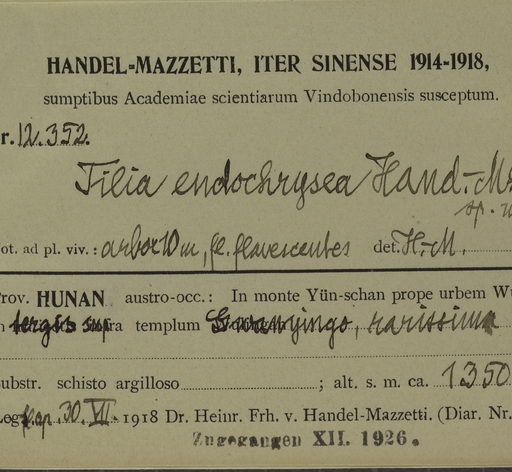 HANDEL=MAZZETTI, ITER SINENSE 1914-1918,
sumptibus Academiae scientiarum Vindobonensis susceptum.
r. 12.352.
Tilia endochrysea Hand.-M
sp. n
ot. ad pl. viv.: arbor 10 m, fl. flavescentes det. H.-M.
rov. HUNAN austro-occ.: In monte Yün-schan prope urbem W
n tergo supra templum Gwanyingo, rarissima
ubstr. schisto argilloso ; alt. s. m. ca. 1350
eg. 30. VII. 1918 Dr. Heinr. Frh. v. Handel-Mazzetti. (Diar. Nr.
Zugegangen XII. 1926.